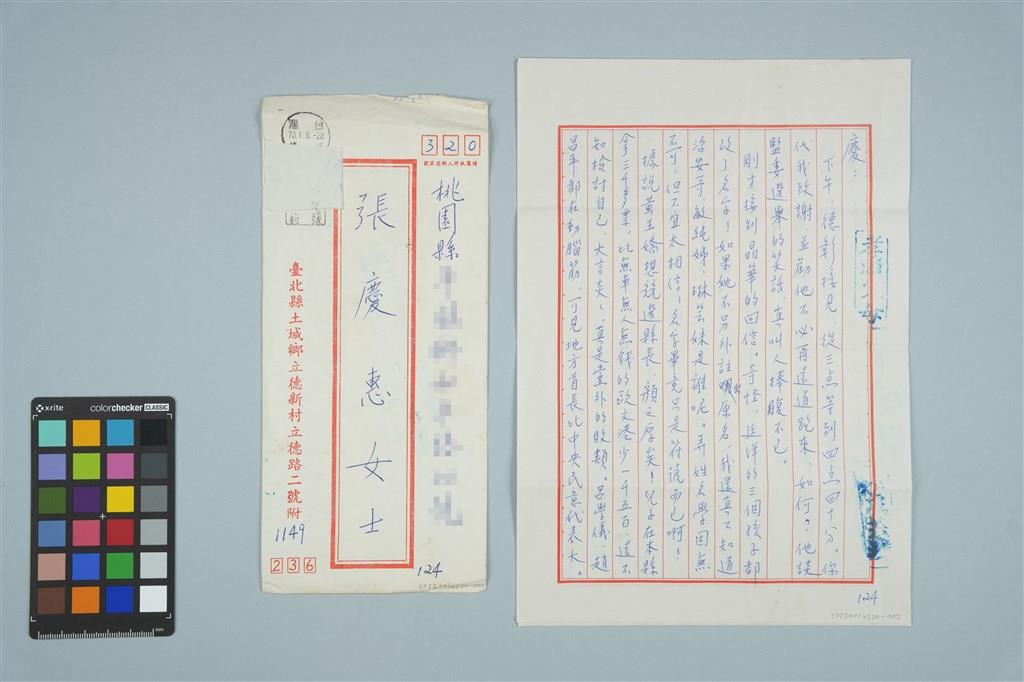 320
桃園縣
張慶惠女士
臺北縣土城鄉立德新村立德路二號附
1149
236
124
70.1.6
x-rite
colorchecker CLASSIC
慶：
下午，德彰接見，從三点等到四点四十分。你
代我致謝，並勸他不必再遠道跑來，如何？他談
監委選舉的笑話，真叫人捧腹不已。
剛才接到晶華的回信。奇怪，廷洋的三個孩子都
改了名字！如果她不另外註出原名，我還真不知道
治安哥、敏純姊、琳芸妹是誰呢。弄姓名學固無
不可，但不宜太相信；名字畢竟只是符號而已啊！
據說黃玉嬌想競選縣長，顏之厚矣！兒子在本縣
拿三千多票，比無車無人無錢的歐文港少一千五百，還不
知檢討自己，大言炎炎，真是黨外的敗類。呂學儀、趙
昌平都在動腦筋，可見地方首長比中央民意代表大。
124